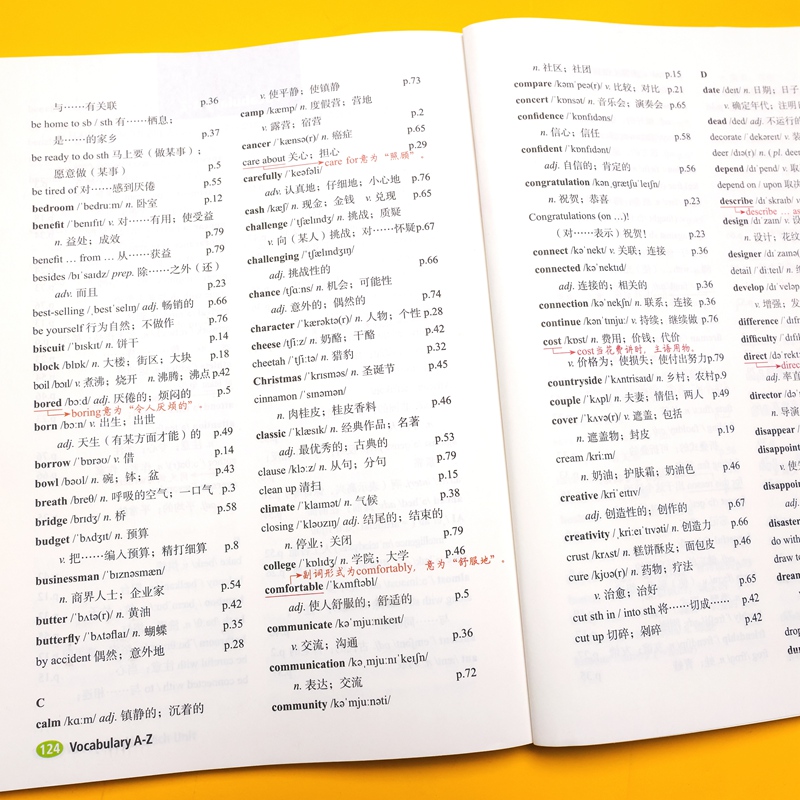 与……有关联 p.36
be home to sb / sth 有……栖息；
是……的家乡 p.37
be ready to do sth 马上要（做某事）；
愿意做（某事） p.5
be tired of 对……感到厌倦 p.55
bedroom /ˈbedruːm/ n. 卧室 p.12
benefit /ˈbenɪfɪt/ v. 对……有用；使受益
n. 益处；成效 p.79
benefit ... from ... 从……获益 p.79
besides /bɪˈsaɪdz/ prep. 除……之外（还）
adv. 而且 p.23
best-selling /ˌbestˈselɪŋ/ adj. 畅销的 p.66
be yourself 行为自然；不做作 p.76
biscuit /ˈbɪskɪt/ n. 饼干 p.14
block /blɒk/ n. 大楼；街区；大块 p.18
boil /bɔɪl/ v. 煮沸；烧开 n. 沸腾；沸点 p.42
bored /bɔːd/ adj. 厌倦的；烦闷的 p.5
boring意为“令人厌烦的”。
born /bɔːn/ v. 出生；出世
adj. 天生（有某方面才能）的 p.49
borrow /ˈbɒrəʊ/ v. 借 p.14
bowl /bəʊl/ n. 碗；钵；盆 p.43
breath /breθ/ n. 呼吸的空气；一口气 p.3
bridge /brɪdʒ/ n. 桥 p.58
budget /ˈbʌdʒɪt/ n. 预算
v. 把……编入预算；精打细算 p.8
businessman /ˈbɪznəsmæn/
n. 商界人士；企业家 p.54
butter /ˈbʌtə(r)/ n. 黄油 p.42
butterfly /ˈbʌtəflaɪ/ n. 蝴蝶 p.35
by accident 偶然；意外地 p.28
C
calm /kɑːm/ adj. 镇静的；沉着的
124 Vocabulary A-Z
v. 使平静；使镇静 p.73
camp /kæmp/ n. 度假营；营地
v. 露营；宿营 p.2
cancer /ˈkænsə(r)/ n. 癌症 p.65
care about 关心；担心 p.29
care for意为“照顾”。
carefully /ˈkeəfəli/
adv. 认真地；仔细地；小心地 p.76
cash /kæʃ/ n. 现金；金钱 v. 兑现 p.65
challenge /ˈtʃælɪndʒ/ n. 挑战；质疑
v. 向（某人）挑战；对……怀疑 p.67
challenging /ˈtʃælɪndʒɪŋ/
adj. 挑战性的 p.66
chance /tʃɑːns/ n. 机会；可能性
adj. 意外的；偶然的 p.74
character /ˈkærəktə(r)/ n. 人物；个性 p.28
cheese /tʃiːz/ n. 奶酪；干酪 p.42
cheetah /ˈtʃiːtə/ n. 猎豹 p.32
Christmas /ˈkrɪsməs/ n. 圣诞节 p.45
cinnamon /ˈsɪnəmən/
n. 肉桂皮；桂皮香料 p.46
classic /ˈklæsɪk/ n. 经典作品；名著
adj. 最优秀的；古典的 p.53
clause /klɔːz/ n. 从句；分句 p.79
clean up 清扫 p.15
climate /ˈklaɪmət/ n. 气候 p.38
closing /ˈkləʊzɪŋ/ adj. 结尾的；结束的
n. 停业；关闭 p.79
college /ˈkɒlɪdʒ/ n. 学院；大学 p.46
副词形式为comfortably，意为“舒服地”。
comfortable /ˈkʌmftəbl/
adj. 使人舒服的；舒适的 p.5
communicate /kəˈmjuːnɪkeɪt/
v. 交流；沟通 p.36
communication /kəˌmjuːnɪˈkeɪʃn/
n. 表达；交流 p.72
community /kəˈmjuːnəti/
n. 社区；社团 p.15
compare /kəmˈpeə(r)/ v. 比较；对比 p.21
concert /ˈkɒnsət/ n. 音乐会；演奏会 p.65
confidence /ˈkɒnfɪdəns/
n. 信心；信任 p.58
confident /ˈkɒnfɪdənt/
adj. 自信的；肯定的 p.56
congratulation /kənˌɡrætʃuˈleɪʃn/
n. 祝贺；恭喜 p.23
Congratulations (on ...)!
（对……表示）祝贺！ p.23
connect /kəˈnekt/ v. 关联；连接 p.36
connected /kəˈnektɪd/
adj. 连接的；相关的 p.36
connection /kəˈnekʃn/ n. 联系；连接 p.36
continue /kənˈtɪnjuː/ v. 持续；继续做 p.76
cost /kɒst/ n. 费用；价钱；代价
cost当花费讲时，主语用物。
v. 价格为；使损失；使付出努力 p.79
countryside /ˈkʌntrisaɪd/ n. 乡村；农村 p.9
couple /ˈkʌpl/ n. 夫妻；情侣；两人 p.49
cover /ˈkʌvə(r)/ v. 遮盖；包括
n. 遮盖物；封皮 p.19
cream /kriːm/
n. 奶油；护肤霜；奶油色 p.46
creative /kriˈeɪtɪv/
adj. 创造性的；创作的 p.67
creativity /ˌkriːeɪˈtɪvəti/ n. 创造力 p.66
crust /krʌst/ n. 糕饼酥皮；面包皮 p.46
cure /kjʊə(r)/ n. 药物；疗法
v. 治愈；治好 p.65
cut sth in / into sth 将……切成…… p.42
cut up 切碎；剁碎 p.42
D
date /deɪt/ n. 日期；日子
v. 确定年代；注明
dead /ded/ adj. 不运行的
decorate /ˈdekəreɪt/ v. 装
deer /dɪə(r)/ n. (pl. deer
depend /dɪˈpend/ v. 取
depend on / upon 取决
describe /dɪˈskraɪb/ v.
describe ... as
design /dɪˈzaɪn/ v. 设
n. 设计；花纹
designer /dɪˈzaɪnə
detail /ˈdiːteɪl/ n.
develop /dɪˈveləp
v. 增强；发
difference /ˈdɪf
difficulty /ˈdɪf
direct /dəˈrekt
direc
adj. 率直
director /də
n. 导演
disappear /
disappoint
v. 使
disappoin
adj.
disaster
do res
draw to
dream
drop
dur